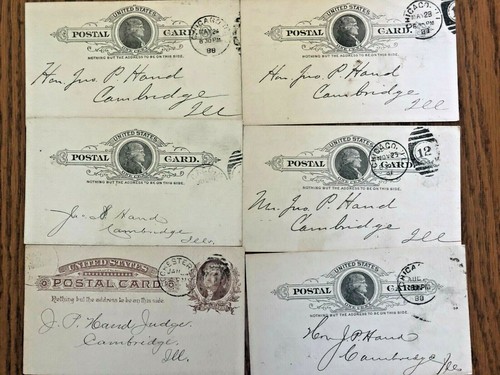 UNITED STATES
POSTAL CARD.
ONE CENT
NOTHING BUT THE ADDRESS TO BE ON THIS SIDE.
CHICAGO, ILL.
MAY 24
88
Hon. Jno. P. Hand
Cambridge
Ill
UNITED STATES
POSTAL CARD.
ONE CENT
NOTHING BUT THE ADDRESS TO BE ON THIS SIDE.
CHICAGO, ILL.
MAY 28
88
Hon. Jno. P. Hand
Cambridge
Ill
UNITED STATES
POSTAL CARD.
ONE CENT
NOTHING BUT THE ADDRESS TO BE ON THIS SIDE.
Hand
Cambridge
Ills.
UNITED STATES
POSTAL CARD.
ONE CENT
NOTHING BUT THE ADDRESS TO BE ON THIS SIDE.
CHICAGO, ILL.
NOV 23
12
Mr. Jno. P. Hand
Cambridge
Ill
UNITED STATES
POSTAL CARD
Nothing but the address to be on this side
JAN
J. P. Hand Judge.
Cambridge.
Ill.
UNITED STATES
POSTAL CARD.
ONE CENT
NOTHING BUT THE ADDRESS TO BE ON THIS SIDE.
CHICAGO
AUG
88
Hon J. P. Hand
Cambridge
Ill